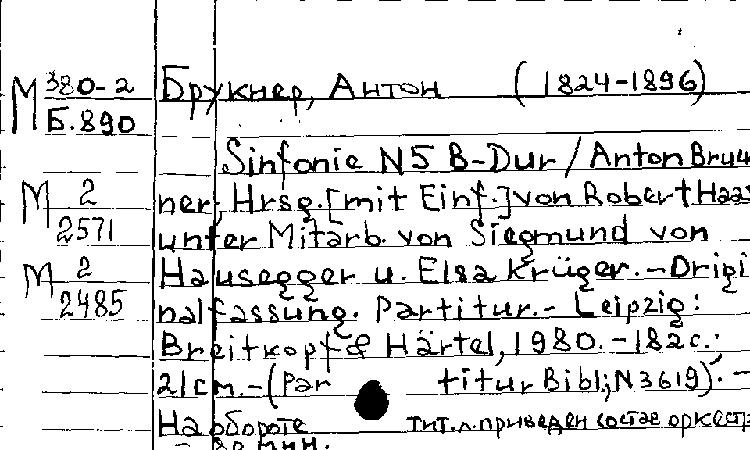 M 380-2 Брукнер, Антон (1824-1896)
Б.890
Sinfonie N5 B-Dur / Anton Bruck
M 2 ner, Hrsg. [mit Einf.] von Robert Haas
2571 unter Mitarb. von Siegmund von
M 2 Hausegger u. Elsa Krüger. - Origi
2485 nalfassung. Partitur. - Leipzig:
Breitkopf & Härtel, 1980. - 182 c.;
21 cm. - (Par titur Bibl; N3619). -
На обороте тит.л. приведен состав оркестр
мин.